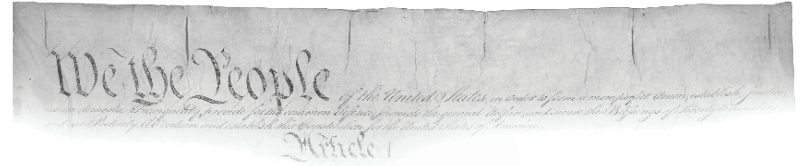 We the People of the United States, in Order to form a more perfect Union, establish Justice,
insure domestic Tranquility, provide for the common defence, promote the general Welfare, and secure the Blessings of Liberty to ourselves
and our Posterity, do ordain and establish this Constitution for the United States of America.
Article I